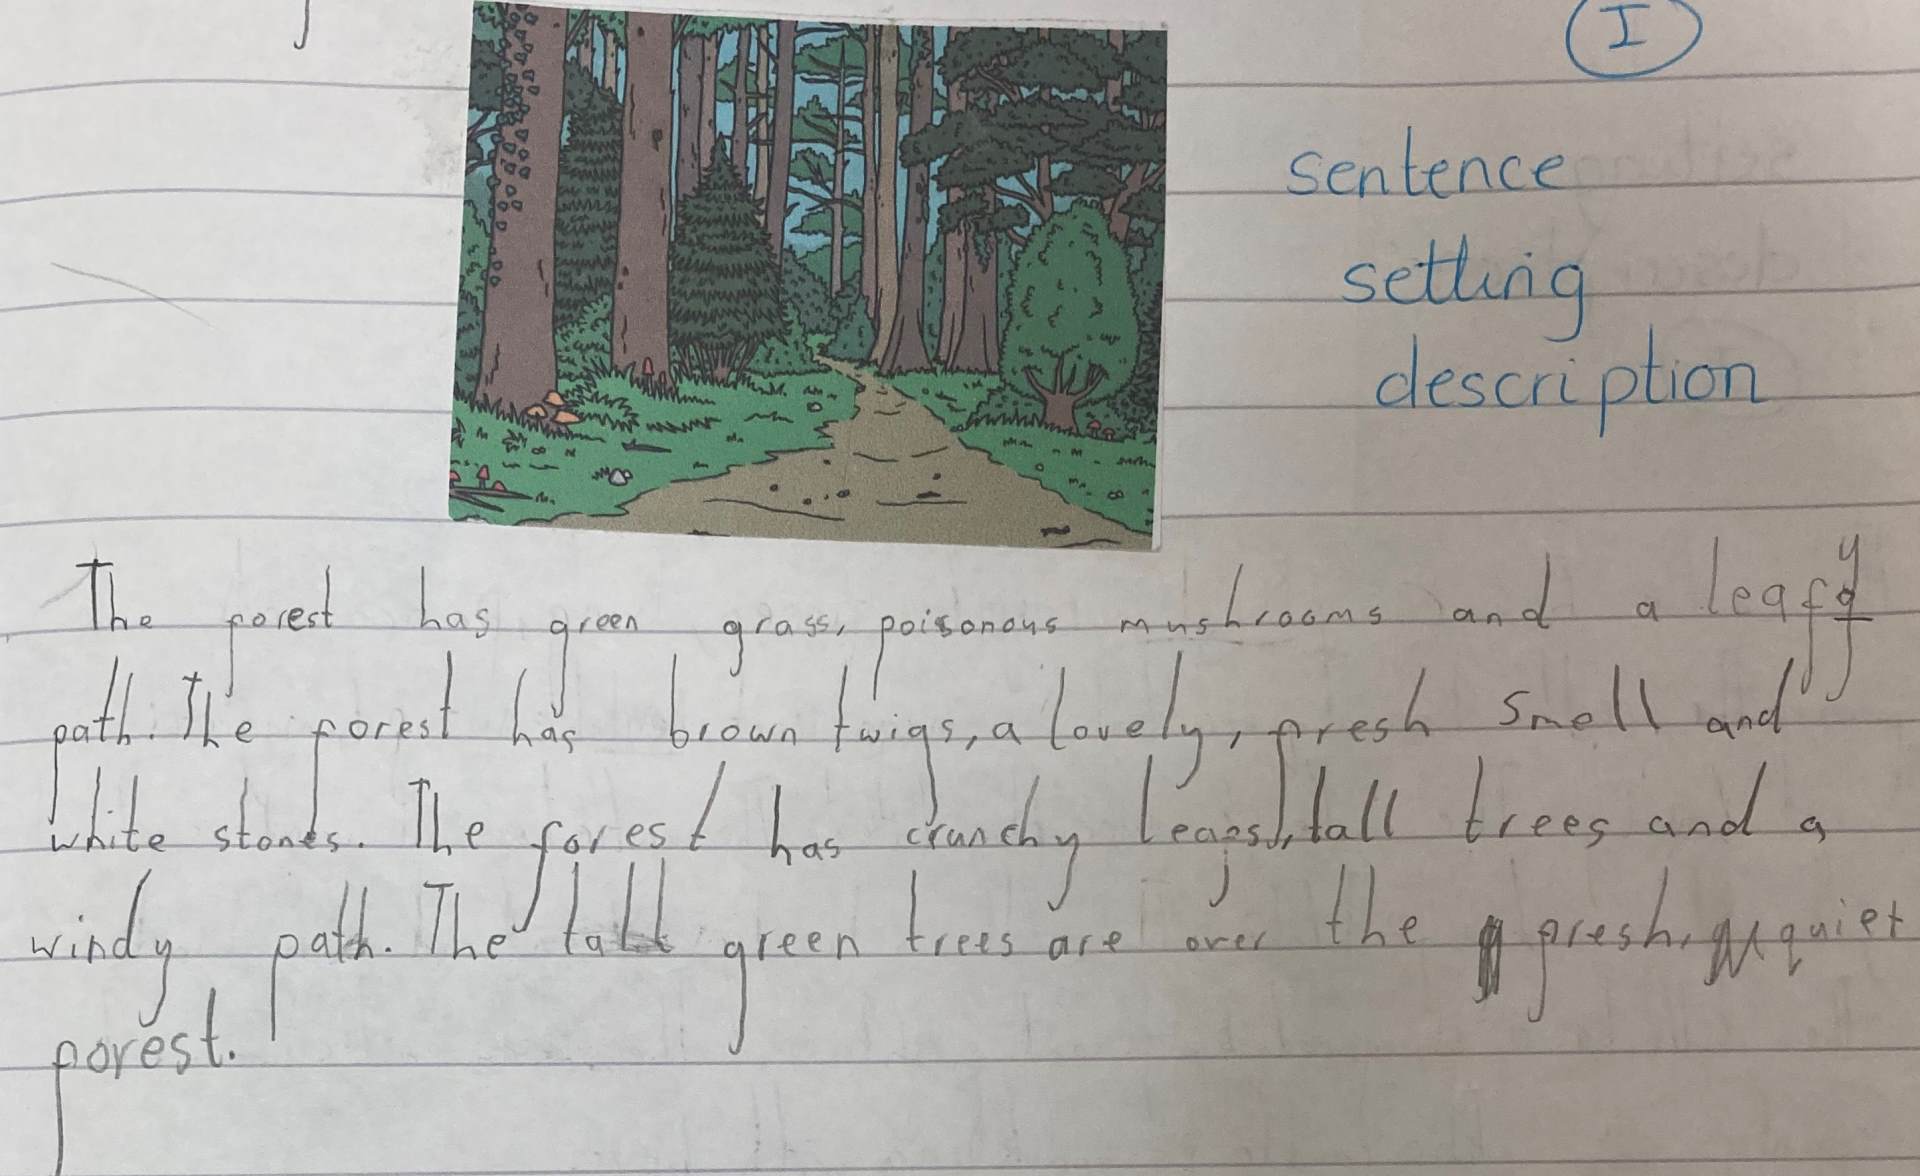 I
sentence
setting
description
The forest has green grass, poisonous mushrooms and a leafy
path. The forest has brown twigs, a lovely, fresh smell and
white stones. The forest has crunchy leafs, tall trees and a
windy path. The tall green trees are over the fresh, quiet
forest.